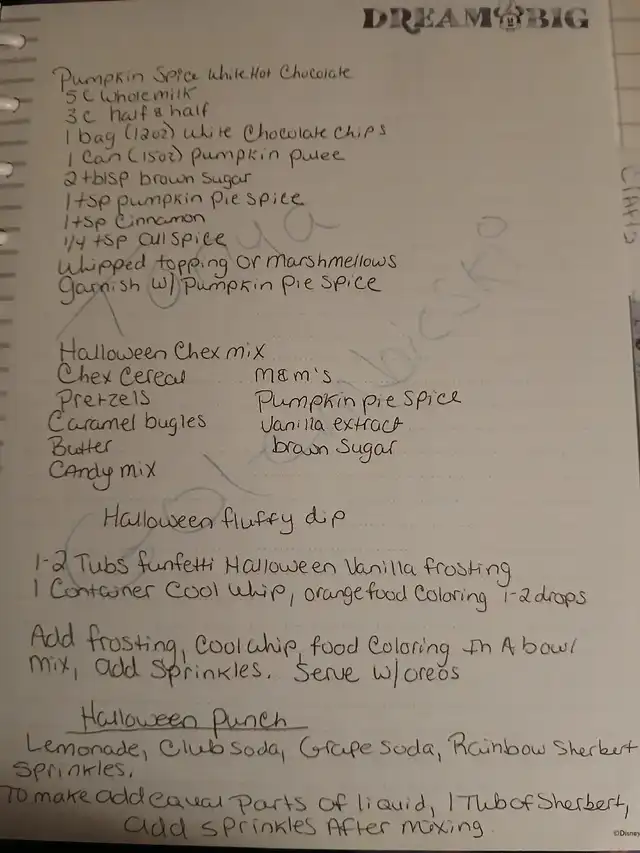 DREAM BIG
Pumpkin Spice White Hot Chocolate
5 C Whole milk
3 c half & half
1 bag (12oz) White Chocolate Chips
1 Can (15oz) pumpkin puree
2 tblsp brown sugar
1 tsp pumpkin pie spice
1 tsp Cinnamon
1/4 tsp all spice
Whipped topping or marshmellows
Garnish w/ Pumpkin pie spice
Halloween Chex mix
Chex Cereal m&m's
Pretzels Pumpkin pie spice
Caramel bugles Vanilla extract
Butter brown sugar
Candy mix
Halloween fluffy dip
1-2 Tubs funfetti Halloween Vanilla frosting
1 Container Cool Whip, orange food Coloring 1-2 drops
Add frosting, Cool whip, food Coloring In A bowl
mix, add sprinkles. Serve w/ oreos
Halloween punch
Lemonade, Club Soda, Grape Soda, Rainbow Sherbert
Sprinkles.
To make add equal parts of liquid, 1 Tub of Sherbert,
add sprinkles After mixing.
©Disney